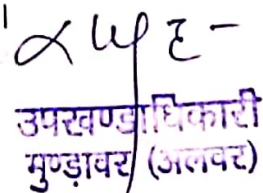 उपखण्डाधिकारी
मुण्ड़ावर (अलवर)